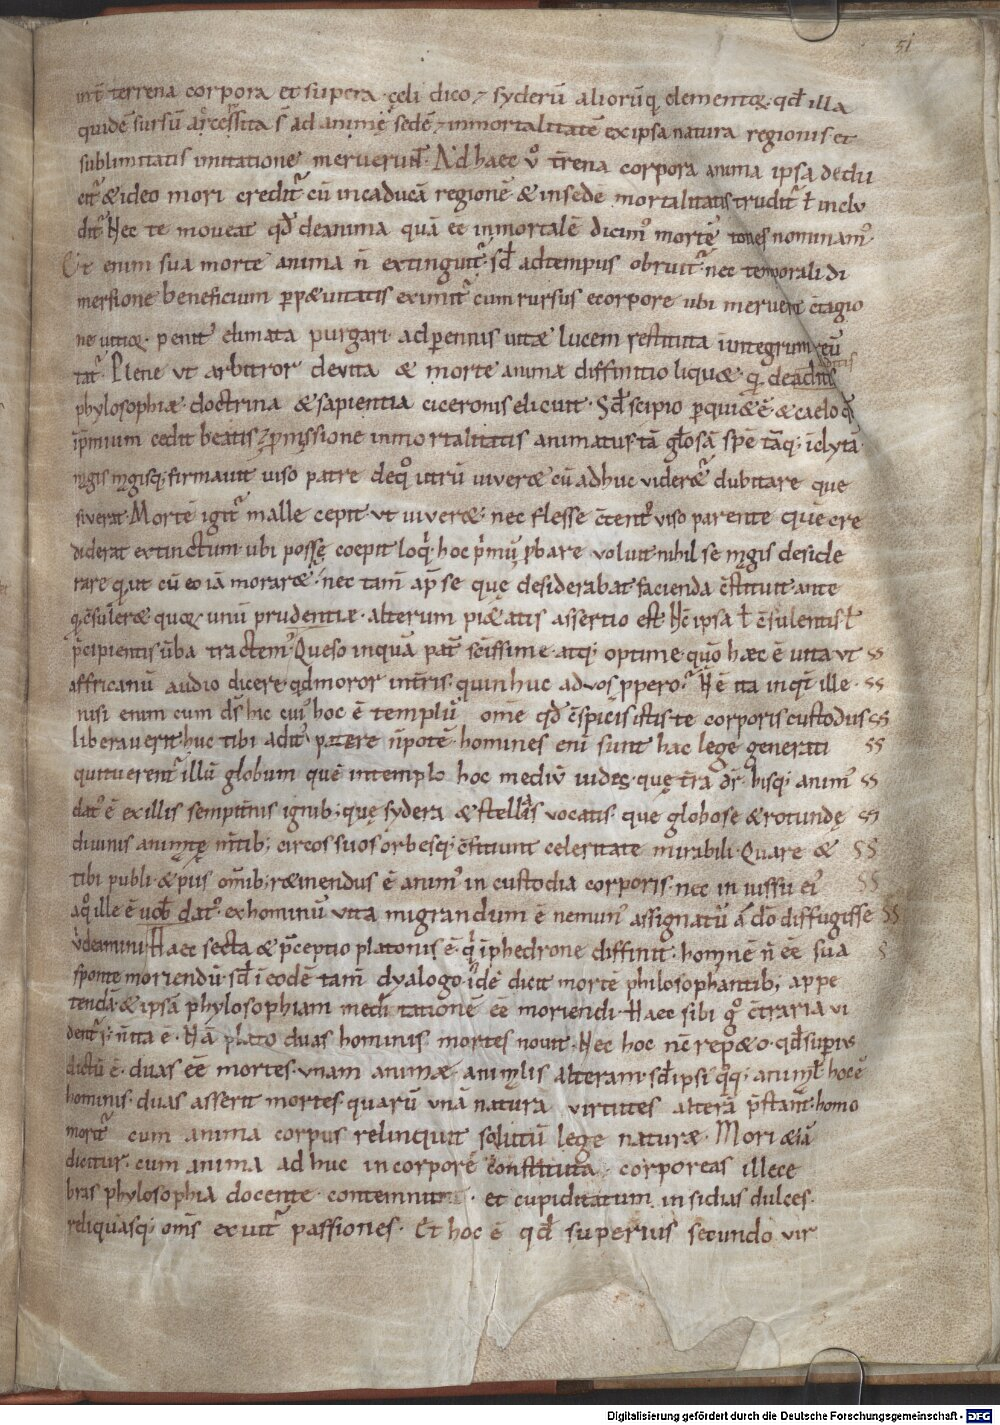 51
int̄ terrena corpora et supera cęli dico ⁊ syderū aliorūq elementoꝝ qđ illa
quidē sursū arcessita s̄ ad animę sedē ⁊ inmortalitatē ex ipsa natura regionis et
sublimitatis imitatione meruerunt̄. Ad haec ů t̄rena corpora anima ipsa dedu
cit᷑ & ideo mori credit᷑ cū in caducā regionē & in sedē mortalitatis trudit᷑ ł inclu
dit᷑ Nec te moueat qđ de anima quā eē inmortalē dicimꝰ mortē toties nominamꝰ
Et enim sua morte anima n̄ extinguit᷑. sđ ad tempus obruit᷑ nec temporali di
mersione beneficium ꝑpetuitatis eximit᷑ cum rursus e corpore ubi meruerit c̄tagio
ne uitioꝝ penit᷑ elimata purgari ad ꝑennis uitæ lucem restituta in integrum reū
tat᷑. Plene ut arbitror de uita & morte animæ diffinitio liquet q̄ de aditis
phylosophiæ doctrina & sapientia ciceronis elicuit. Sđ scipio ꝑ quietē & caelo q̄
ip̄mium cedit beatis ⁊ ꝓmissione inmortalitatis animatus tā gl̄osā spē tāq; iclytā
mgis mgisq; firmauit uiso patre de q̊ utrū uiveræ cū adhuc videræ᷑ dubitare que
siverat. Mortē igit᷑ malle cepit ut uiveræ; nec flesse c̄tentꝰ viso parente quē cre
diderat extinctum ubi possę coepit loq̄ hoc p̄mū ꝓbare voluit nihil se mgis deside
rare q̄ ut cū eo iā moraræ. nec tam̄ ap̄ se quę desiderabat facienda c̄stituit ante
q̄ c̄sulerǣ quoꝝ unū prudentiæ alterum pietatis assertio est Nc̄ ipsa ł c̄sulentis ł
p̄cipientis ūba tractemꝰ. Queso inquā pat̄ sc̄issime atq; optime quō haec ē uita ut ss
affricanū audio dicere qđ moror in t̄ris quin huc ad vos ꝓpero. Ñ ē ita inq̄t ille. ss
nisi enim cum dš hic cuiꝰ hoc ē templū om̄e qđ c̄spicis istis te corporis custodiis ss
liberauerit huc tibi adit᷑ patere n̄ potē. homines eni sunt hac lege generati ss
qui tuerent᷑ illū globum quē in templo hoc mediū uides quę t̄ra dr̄ hisq; animꝰ ss
datꝰ ē ex illis sempit̄nis ignib; quę sydera & stellas vocatis que globose & rotundę ss
diuinis animatę m̄tib; circos suos orbesq; c̄ficiunt celeritate mirabili. Quare & ss
tibi publi & piis om̄ib; rætinendus ē animꝰ in custodia corporis nec iniussu eiꝰ ss
a q̊ ille ē uob̄ datꝰ ex hominū uita migrandum ē ne munꝰ assignatū a dō diffugisse ss
ůdeamini Haec secta & p̄ceptio platonis ē. q̄ i phedrone diffinit. hominē n̄ eē sua s
sponte moriendū. sđ i eodē tam̄ dyalogo idē dicit mortē philosophantib; appe
tendā & ipsā phylosophiam meditationē eē moriendi. Haec sibi gͦ c̄traria vi
dent᷑. s; n̄ ita ē. Nā plato duas hominis mortes nouit. Nec hoc nc̄ repeto qđ supius
dictū ē. duas eē mortes. unam animæ animalis alteram. sđ ipsi q̊q; animał hoc ē
hominis duas asserit mortes quarū unā naturā virtutes alterā p̄stant. homo
morit᷑ cum anima corpus relinquit solutū lege naturæ. Mori & iā
dicitur. cum anima ad huc in corpore constituta corporeas illece
bras phylosophia docente contemnit. et cupiditatum insidias dulces.
reliquasq; om̄s exuit᷑ passiones. Et hoc ē qđ superius secundo vir
Digitalisierung gefördert durch die Deutsche Forschungsgemeinschaft - DFG